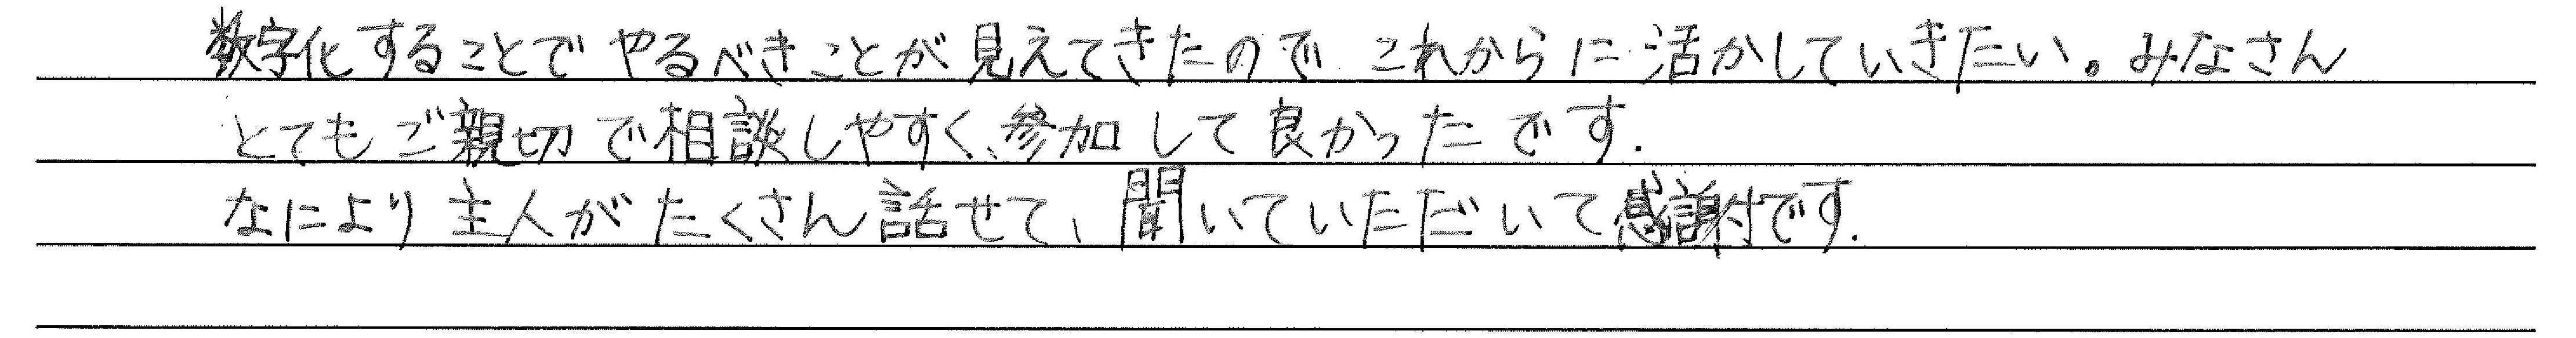 数字化することでやるべきことが見えてきたので これからに活かしていきたい。みなさん
とてもご親切で相談しやすく、参加して良かったです.
なにより主人がたくさん話せて、聞いていただいて感謝です.